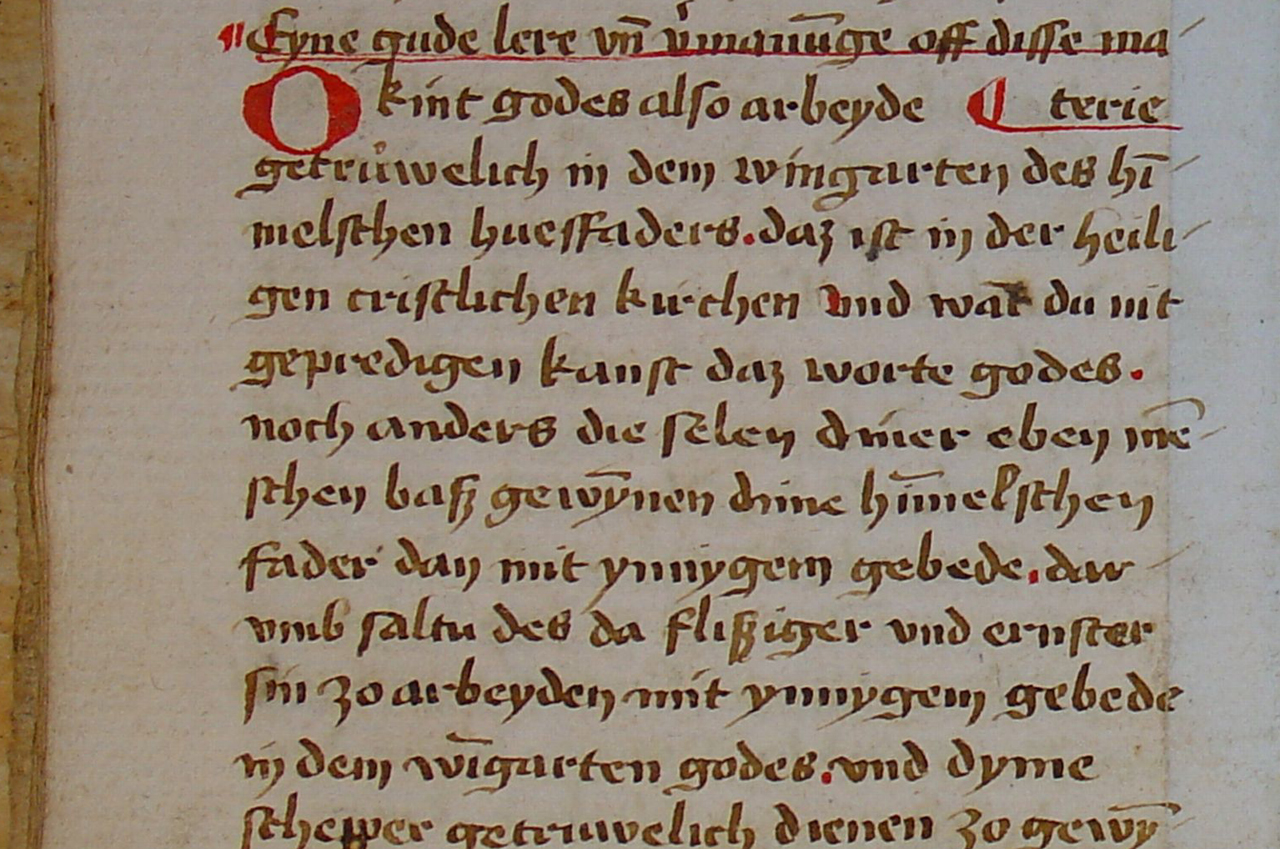 Eyne gude lere vn̄ v̾manūge off disse ma
O kint godes also arbeyde ¶ terie
getruwelich in dem wingarten des hī
melschen huesfaders. daz ist in der heili
gen cristlichen kirchen Vnd wāt du nit
gepredigen kanst daz worte godes.
noch anders die selen diner eben mē
schen basz gewȳnen dime hīmelschen
fader dan mit ynnygem gebede. dar
vmb saltu des da fliszsiger vnd ernster
sin zo arbeyden mit ynnygem gebede
in dem wīgarten godes. vnd dyme
schepper getruwelich dienen zo gewȳ